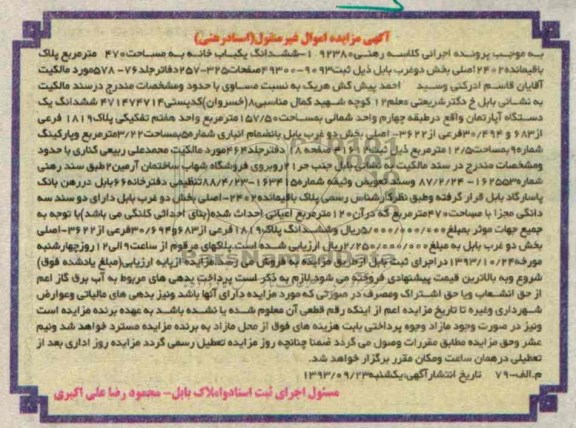 آگهی مزایده اموال غیر منقول(اسنادرهنی)
به موجب پرونده اجرائی کلاسه رهنی:۹۲۳۸۰ ۱-ششدانگ یکباب خانه به مساحت۴۷۰ مترمربع پلاک
باقیمانده۲۴۰۲اصلی بخش دوغرب بابل ذیل ثبت۹۰۹۳-۴۹۳۰۰صفحات۳۲۵-۲۵۷دفترجلد۷۶- ۵۷۸مورد مالکیت
آقایان قاسم ادرکنی وسید احمد پیش کش هریک به نسبت مساوی با حدود ومشخصات مندرج درسند مالکیت
به نشانی بابل خ دکترشریعتی معلم۱۲ کوچه شهید کمال مناسبی۸(خسروان)کدپستی۴۷۱۴۷۴۷۱۴ ششدانگ یک
دستگاه آپارتمان واقع درطبقه چهارم واحد شمالی بمساحت۱۵۷/۵۰مترمربع واحد هفتم تفکیکی پلاک۱۸۱۹ فرعی
از۶۸۳ و ۳۰/۴۹۴فرعی از۳۶۲۲- اصلی بخش دو غرب بابل بانضمام انباری شماره۵بمساحت۳/۲۲مترمربع وپارکینگ
شماره۹بمساحت۱۲/۵مترمربع ذیل ثبت ۸۴۱۶۲صفحه ۲۸ دفترجلد۴۶۴مورد مالکیت محمدعلی ربیعی کناری با حدود
ومشخصات مندرج در سند مالکیت به نشانی بابل جنب حر۲۱روبروی فروشگاه شهاب ساختمان آرمین۲طبق سند رهنی
شماره۱۶۲۵۵۳- ۸۷/۲/۲۴ وسند تعویض وثیقه شماره۱۶۳۴۱۵-۸۸/۴/۲۳تنظیمی دفترخانه۶۶بابل دررهن بانک
پاسارگاد بابل قرار گرفته وطبق نظرکارشناس رسمی پلاک باقیمانده۲۴۰۲-اصلی بخش دو غرب بابل دارای دو سند سه
دانگی مجزا با مساحت۴۷۰مترمربع که درآن۱۲۰مترمربع اعیانی احداث شده(بنای احداثی کلنگی می باشد)با توجه به
جمیع جهات موثر بمبلغ۵/۰۰۰/۰۰۰/۰۰۰ریال وششدانگ پلاک۱۸۱۹فرعی از۶۸۳و۳۰/۶۹۴فرعی از۳۶۲۲-اصلی
بخش دو غرب بابل به مبلغ۲/۲۵۰/۰۰۰/۰۰۰ریال ارزیابی شده است.پلاکهای مرقوم از ساعت۹ الی۱۲ روزچهارشنبه
مورخه۱۳۹۳/۱۰/۲۴ دراجرای ثبت بابل از طریق مزایده به فروش می رسد.مزایده ازپایه ارزیابی(مبلغ یادشده فوق)
شروع وبه بالاترین قیمت پیشنهادی فروخته می شود.لازم به ذکر است پرداخت بدهی های مربوط به آب برق گاز اعم
از حق انشعاب ویا حق اشتراک ومصرف در صورتی که مورد مزایده دارای آنها باشد ونیز بدهی های مالیاتی وعوارض
شهرداری وغیره تا تاریخ مزایده اعم از اینکه رقم قطعی آن معلوم شده یا نشده باشد به عهده برنده مزایده است
ونیز در صورت وجود مازاد وجوه پرداختی بابت هزینه های فوق از محل مازاد به برنده مزایده مسترد خواهد شد ونیم
عشر وحق مزایده مطابق مقررات وصول می گردد ضمنا چنانچه روز مزایده تعطیل رسمی گردد مزایده روز اداری بعد از
تعطیلی درهمان ساعت ومکان مقرر برگزار خواهد شد.
م.الف-۷۹ تاریخ انتشارآگهی:یکشنبه۱۳۹۳/۰۹/۲۳
مسئول اجرای ثبت اسنادواملاک بابل- محمود رضا علی اکبری